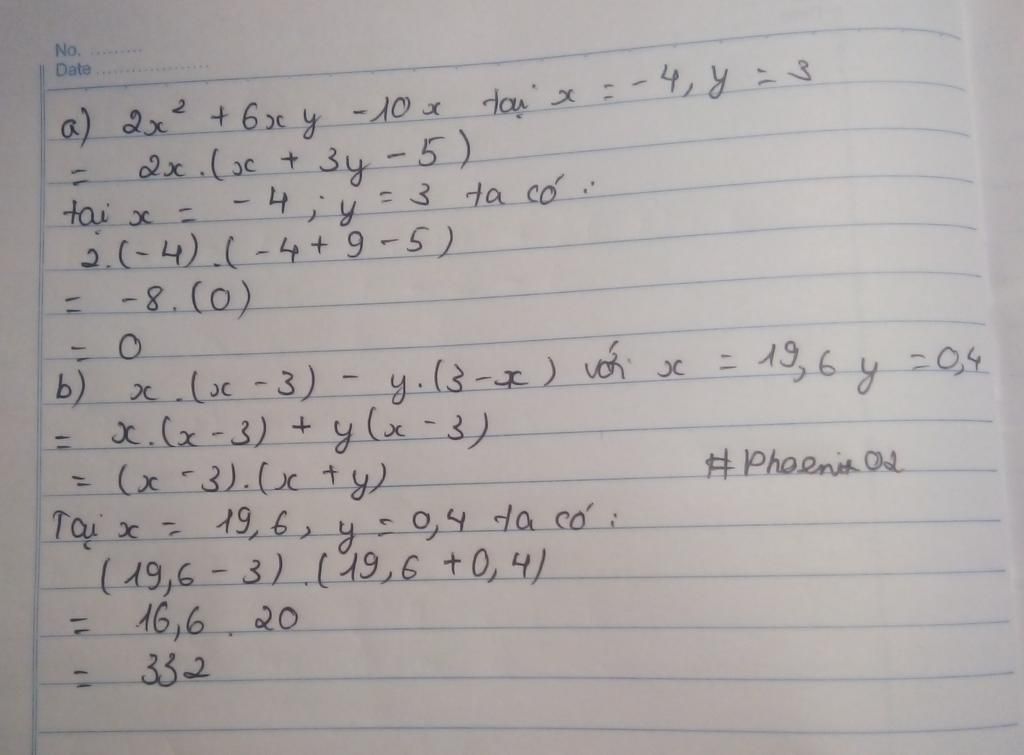 No. ..........
Date ....................
a) 2x² + 6xy - 10x tại x = -4, y = 3
= 2x.(x + 3y - 5)
tại x = -4 ; y = 3 ta có :
2.(-4).(-4 + 9 - 5)
= -8.(0)
= 0
b) x.(x - 3) - y.(3 - x) với x = 19,6 y = 0,4
= x.(x - 3) + y(x - 3)
= (x - 3).(x + y)
#Phoenix02
Tại x = 19,6, y = 0,4 ta có :
(19,6 - 3).(19,6 + 0,4)
= 16,6 . 20
= 332